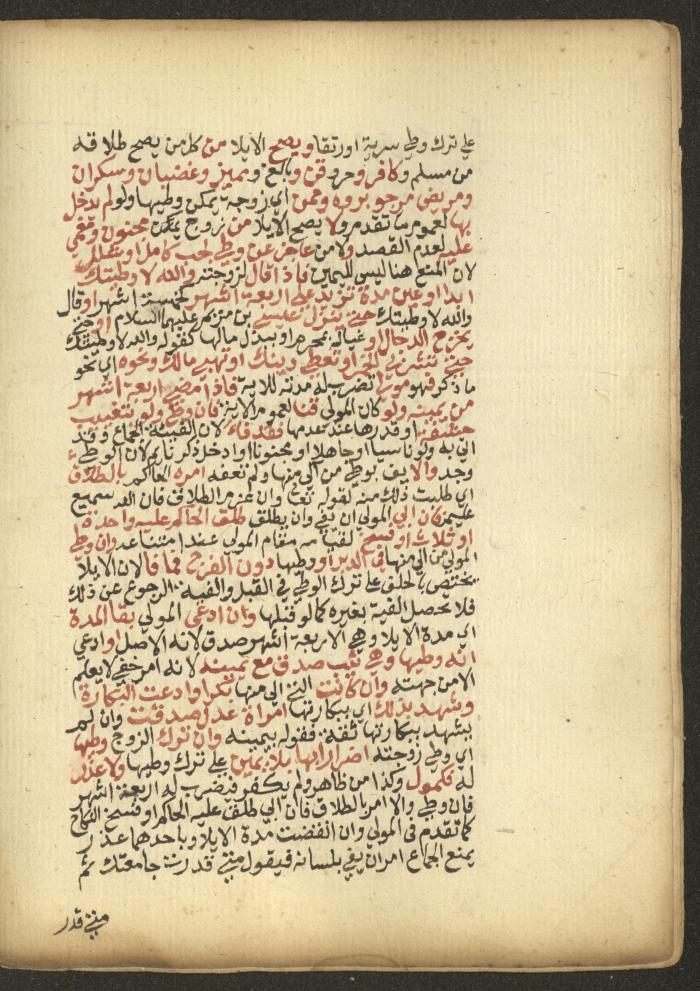 على ترك وطي سرية او رتقا ويصح الايلا من كل من يصح طلاقه
من مسلم وكافر وحر وقن وبالغ ومميز وغضبان وسكران
ومريض مرجو بروه وممن اي زوجة يمكن وطيها ولو لم يدخل
بها لعموم ما تقدم ولا يصح الايلا من زوج مجنون ومغمى
عليه لعدم القصد ولا من عاجز عن وطي لجب كامل او شلل
لان المنع هنا ليس لليمين فاذا قال لزوجته والله لا وطيتك
ابدا او عين مدة تزيد على اربعة اشهر كخمسة اشهر او قال
والله لا وطيتك حتى ينزل عيسى بن مريم عليهما السلام او حتى
يخرج الدجال او غياه بمحرم او ببذل مالها كقوله والله لا وطيتك
حتى تشربي الخمر او تعطي دينك او تهبي مالك ونحوه اي نحو
ما ذكر فهو مولي تضرب له مدته للاية فاذا مضى اربعة اشهر
من يمينه ولو كان المولي قنا لعموم الاية فان وطي ولو بتغييب
حشفة او قدرها عند عدمها فقد فاء لان الفيئة الجماع وقد
اتى به ولو ناسيا او جاهلا او مجنونا او ادخل ذكر نايم لان الوطيء
وجد والا يف بوطي من الى منها ولم تعفه امره الحاكم بالطلاق
اي طلبت ذلك منه لقوله تعا وان عزموا الطلاق فان الله سميع
عليم فان ابى المولي ان يفي وان يطلق طلق الحاكم عليه واحدة
او ثلاث او فسخ لقيامه مقام المولي عند امتناعه وان وطي
المولي من الى منها في الدبر او وطيها دون الفرج فما فا لان الايلا
يختص بالحلف على ترك الوطي في القبل والفيه الرجوع عن ذلك
فلا تحصل الفية بغيره كما لو قبلها وان ادعى المولي بقا المدة
اي مدة الايلا وهي الاربعة اشهر صدق لانه الاصل او ادعى
انه وطيها وهي ثيب صدق مع يمينه لانه امر خفي لا يعلم
الا من جهته وان كانت التي الى منها بكرا وادعت البكارة
وشهد بذلك اي ببكارتها امراة عدل صدقت وان لم
يشهد ببكارتها ثقة فقوله بيمينه وان ترك الزوج وطيها
اي وطي زوجته اضرارا بها بلا يمين على ترك وطيها ولا عذر
له فكمول وكذا من ظاهر ولم يكفر فيضرب له اربعة اشهر
فان وطي والا امر بالطلاق فان ابى طلق عليه الحاكم او فسخ النكاح
كما تقدم في المولي وان انقضت مدة الايلا وباحدهما عذر
يمنع الجماع امر ان يفي بلسانه فيقول متى قدرت جامعتك ثم
متى قدر